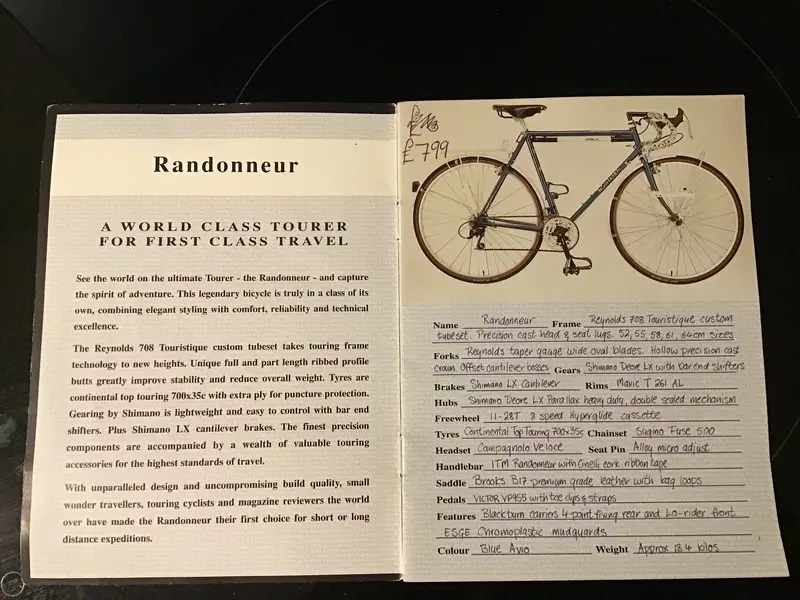 Randonneur
A WORLD CLASS TOURER
FOR FIRST CLASS TRAVEL
See the world on the ultimate Tourer - the Randonneur - and capture
the spirit of adventure. This legendary bicycle is truly in a class of its
own, combining elegant styling with comfort, reliability and technical
excellence.
The Reynolds 708 Touristique custom tubeset takes touring frame
technology to new heights. Unique full and part length ribbed profile
butts greatly improve stability and reduce overall weight. Tyres are
continental top touring 700x35c with extra ply for puncture protection.
Gearing by Shimano is lightweight and easy to control with bar end
shifters. Plus Shimano LX cantilever brakes. The finest precision
components are accompanied by a wealth of valuable touring
accessories for the highest standards of travel.
With unparalleled design and uncompromising build quality, small
wonder travellers, touring cyclists and magazine reviewers the world
over have made the Randonneur their first choice for short or long
distance expeditions.
£799
Name Randonneur Frame Reynolds 708 Touristique custom
tubeset. Precision cast head & seat lugs. 52, 55, 58, 61, 64cm sizes
Forks Reynolds taper gauge wide oval blades. Hollow precision cast
crown. Offset cantilever bosses Gears Shimano Deore LX with bar end shifters
Brakes Shimano LX Cantilever Rims Mavic T 261 AL
Hubs Shimano Deore LX Parallax heavy duty, double sealed mechanism
Freewheel 11-28T 8 speed Hyperglide cassette
Tyres Continental Top Touring 700x35c Chainset Sugino Fuse 500
Headset Campagnolo Veloce Seat Pin Alloy micro adjust
Handlebar ITM Randonneur with Cinelli cork ribbon tape
Saddle Brooks B17 premium grade leather with bag loops
Pedals VICTOR VP955 with toe clips & straps
Features Blackburn carriers 4-point fixing rear and Lo-rider front
ESGE Chromoplastic mudguards
Colour Blue Avio Weight Approx 13.4 kilos